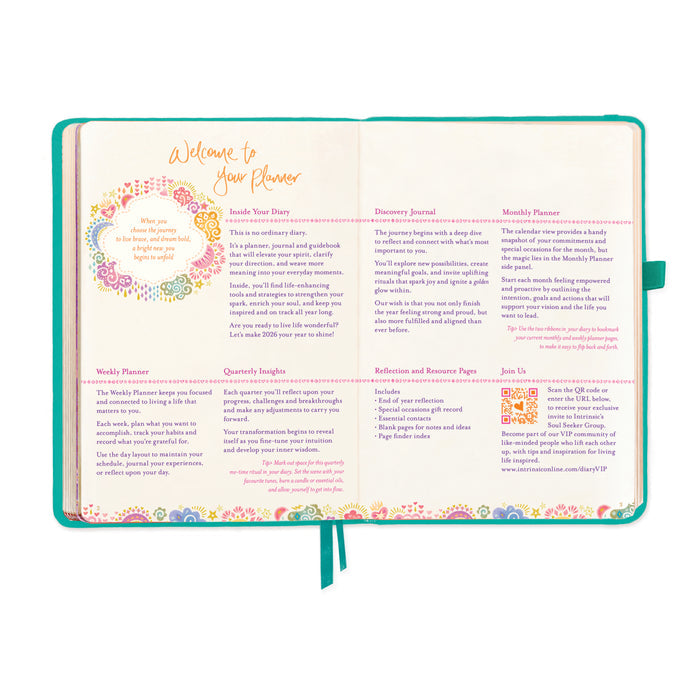 Welcome to
Your Planner
When you
choose the journey
to live brave, and dream bold,
a bright new you
begins to unfold
Inside Your Diary
This is no ordinary diary.
It's a planner, journal and guidebook
that will elevate your spirit, clarify
your direction, and weave more
meaning into your everyday moments.
Inside, you'll find life-enhancing
tools and strategies to strengthen your
spark, enrich your soul, and keep you
inspired and on track all year long.
Are you ready to live life wonderful?
Let's make 2026 your year to shine!
Weekly Planner
The Weekly Planner keeps you focused
and connected to living a life that
matters to you.
Each week, plan what you want to
accomplish, track your habits and
record what you're grateful for.
Use the day layout to maintain your
schedule, journal your experiences,
or reflect upon your day.
Quarterly Insights
Each quarter you'll reflect upon your
progress, challenges and breakthroughs
and make any adjustments to carry you
forward.
Your transformation begins to reveal
itself as you fine-tune your intuition
and develop your inner wisdom.
Tip: Mark out space for this quarterly
me-time ritual in your diary. Set the scene with your
favourite tunes, burn a candle or essential oils,
and allow yourself to get into flow.
2
Discovery Journal
The journey begins with a deep dive
to reflect and connect with what's most
important to you.
You'll explore new possibilities, create
meaningful goals, and invite uplifting
rituals that spark joy and ignite a golden
glow within.
Our wish is that you not only finish
the year feeling strong and proud, but
also more fulfilled and aligned than
ever before.
Monthly Planner
The calendar view provides a handy
snapshot of your commitments and
special occasions for the month, but
the magic lies in the Monthly Planner
side panel.
Start each month feeling empowered
and proactive by outlining the
intention, goals and actions that will
support your vision and the life you
want to lead.
Tip: Use the two ribbons in your diary to bookmark
your current monthly and weekly planner pages,
to make it easy to flip back and forth.
Reflection and Resource Pages
Includes
• End of year reflection
• Special occasions gift record
• Essential contacts
• Blank pages for notes and ideas
• Page finder index
Join Us
Scan the QR code or
enter the URL below,
to receive your exclusive
invite to Intrinsic's
Soul Seeker Group.
Become part of our VIP community of
like-minded people who lift each other
up, with tips and inspiration for living
life inspired.
www.intrinsiconline.com/diaryVIP
3